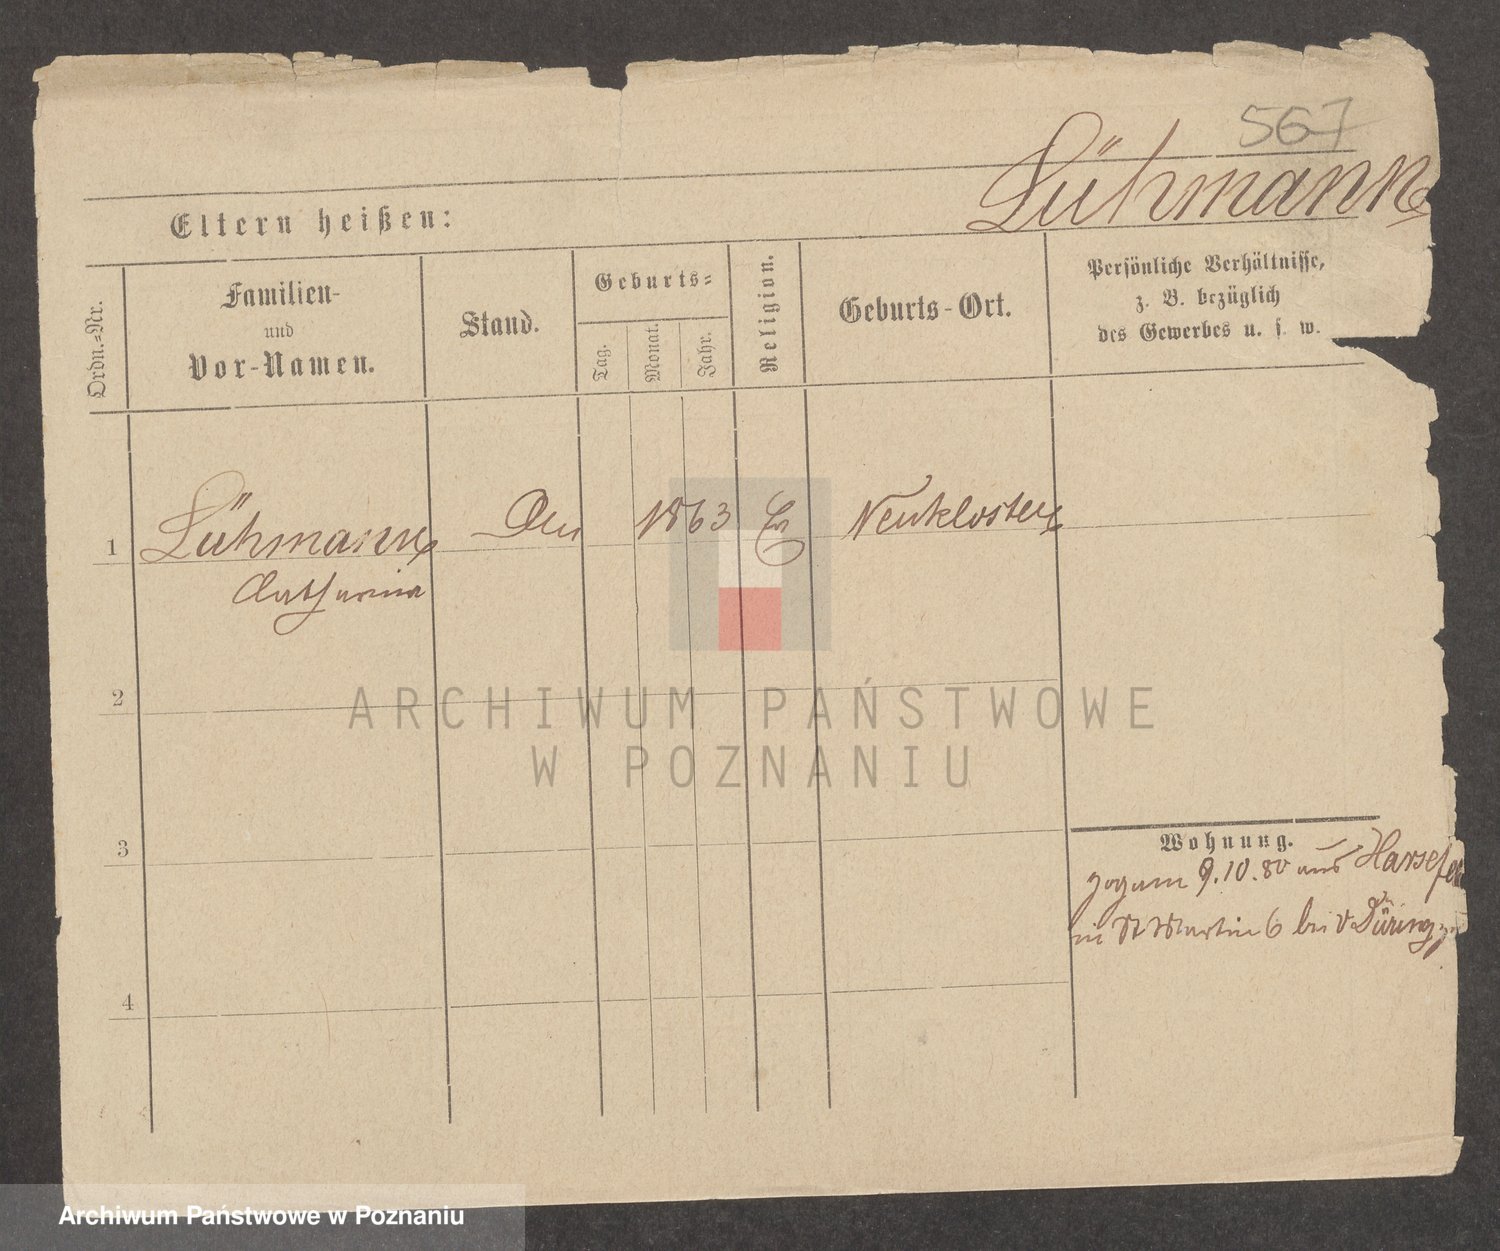 567
Lühmann
Eltern heißen:
Ordn.=Nr.
Familien-
und
Vor-Namen.
Stand.
Geburts=
Tag.
Monat.
Jahr.
Religion.
Geburts-Ort.
Persönliche Verhältnisse,
z. B. bezüglich
des Gewerbes u. s. w.
1
Lühmann
Catharina
1863
Neukloster
2
3
4
Wohnung.
9.10.80 aus
in St Martin 6 bei v Düring
ARCHIWUM PAŃSTWOWE
W POZNANIU
Archiwum Państwowe w Poznaniu